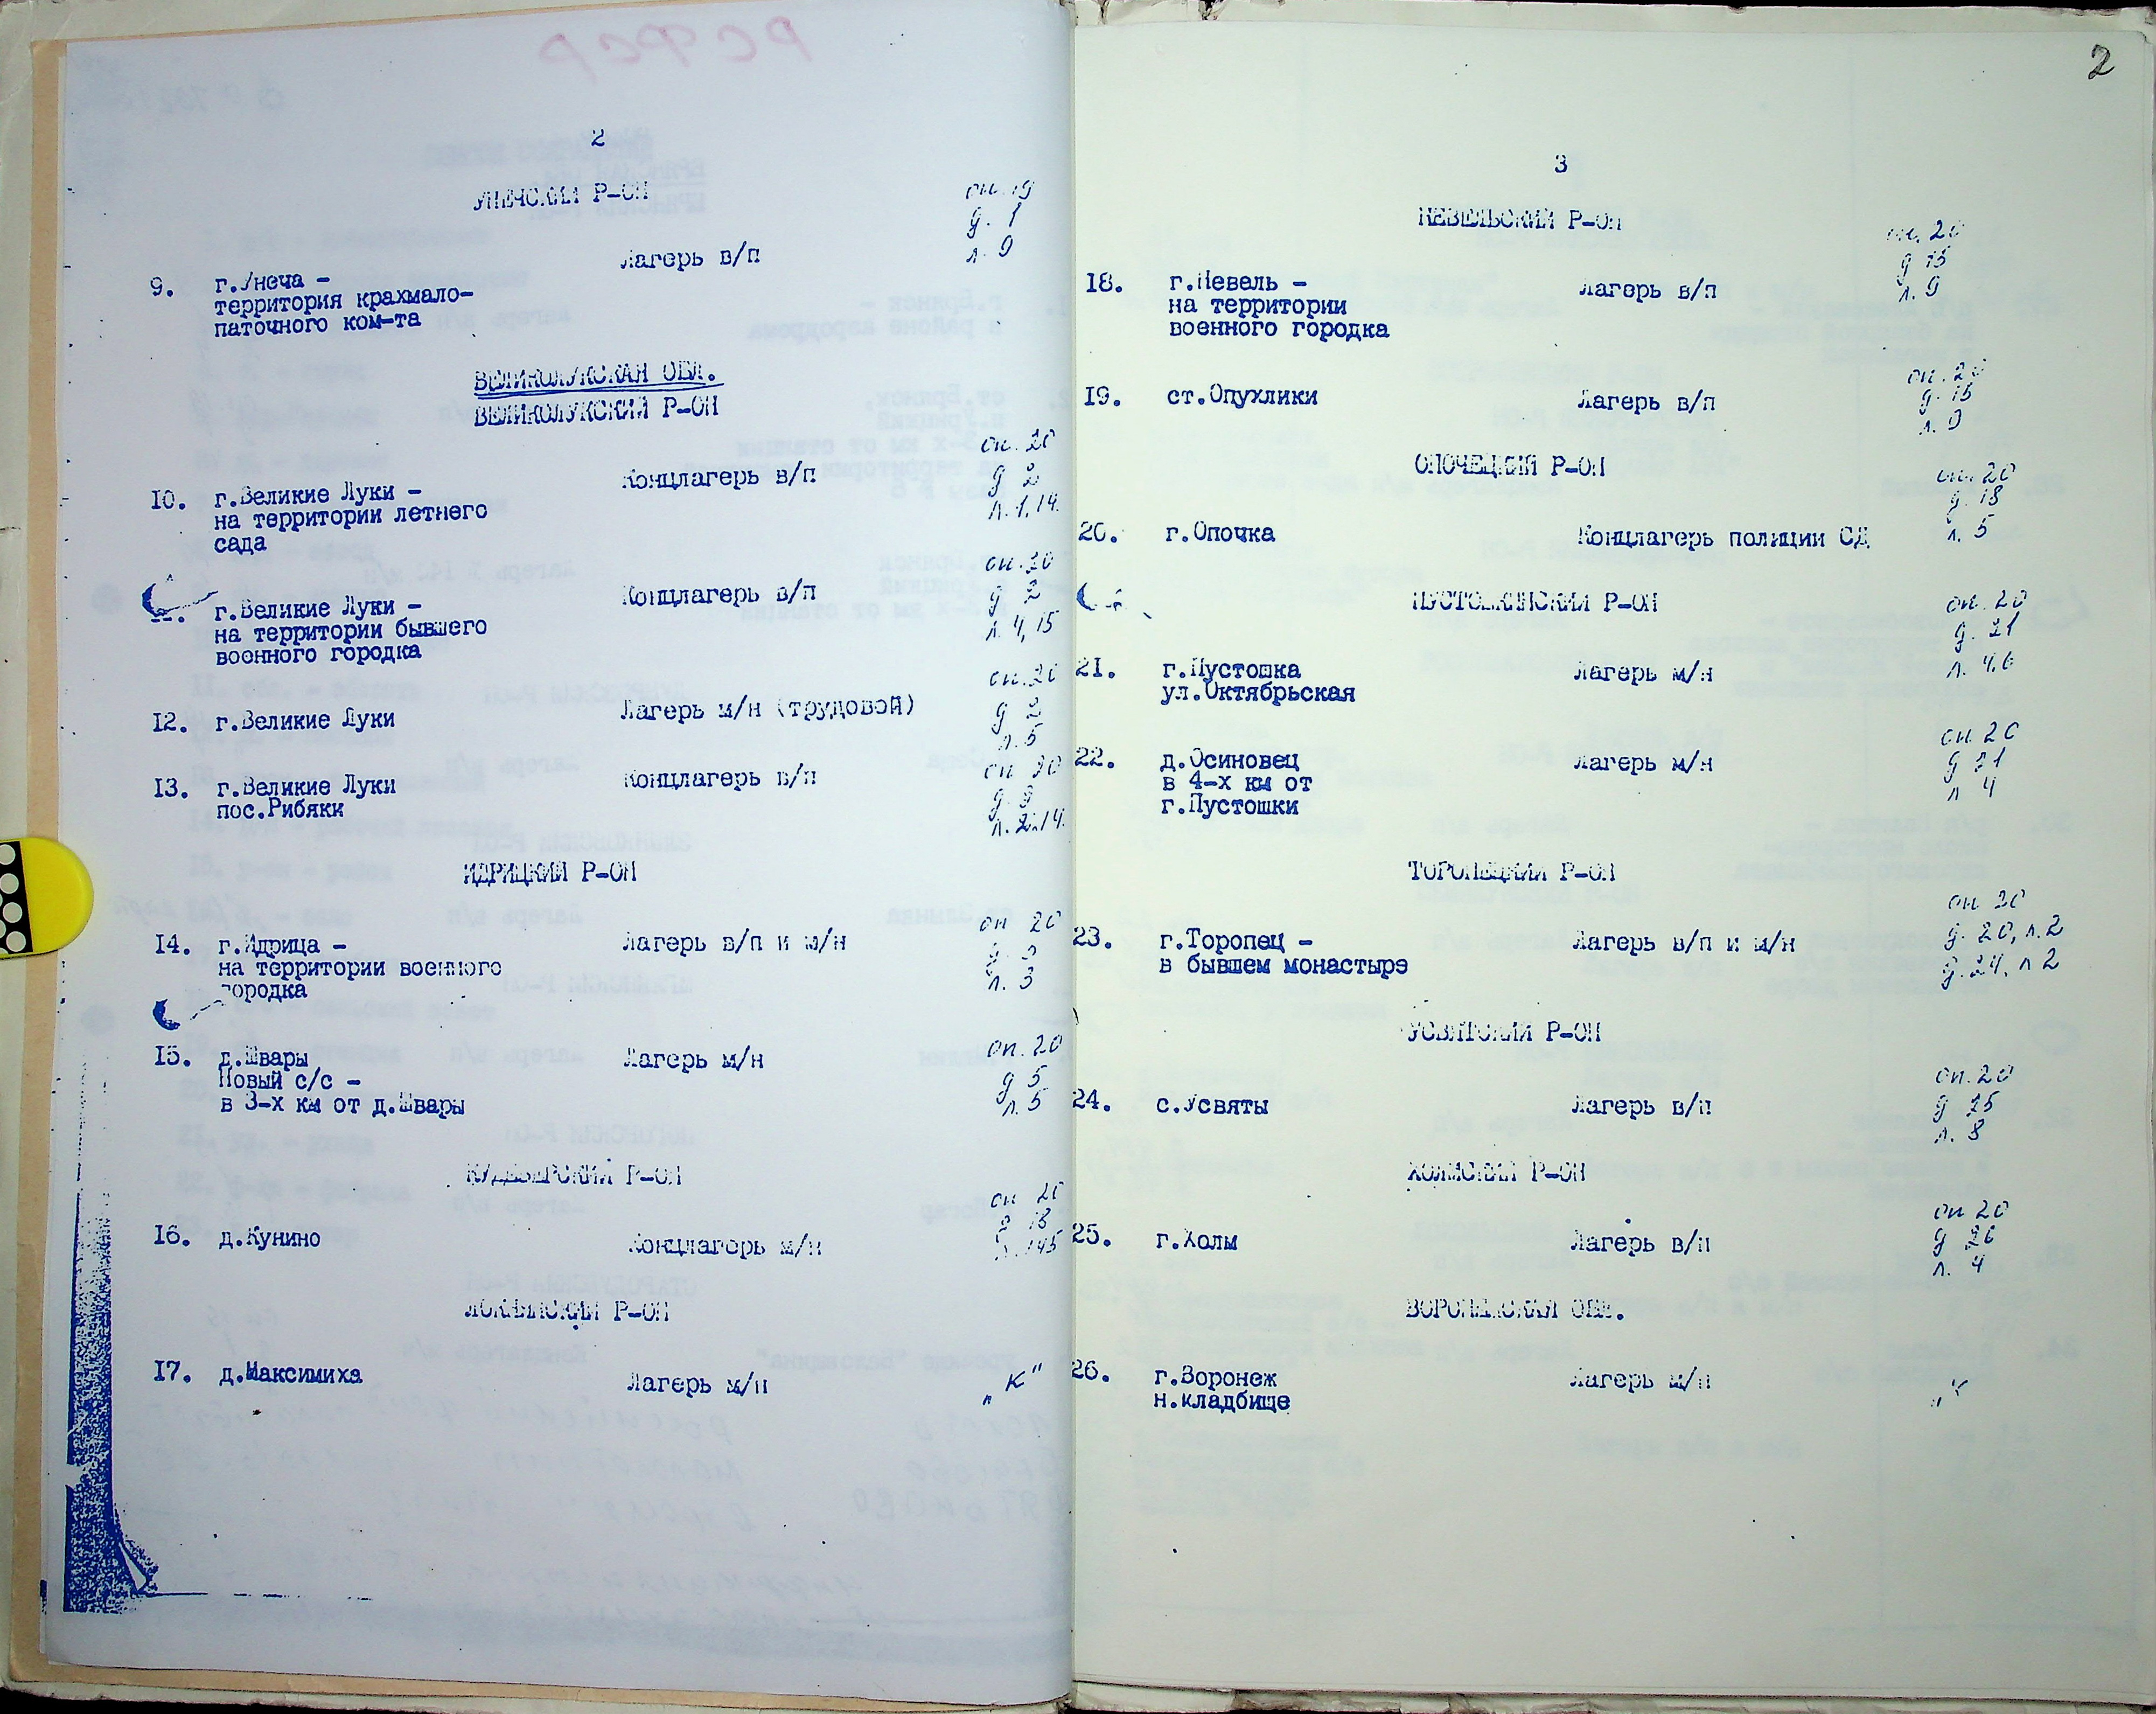 2
УНЕЧСКИЙ Р-ОН
оп. 19
д. 1
л. 9
9. г.Унеча -
территория крахмало-
паточного ком-та
Лагерь в/п
ВЕЛИКОЛУКСКАЯ ОБЛ.
ВЕЛИКОЛУКСКИЙ Р-ОН
10. г.Великие Луки -
на территории летнего
сада
Концлагерь в/п
оп. 20
д 2
л. 1,14.
г.Великие Луки -
на территории бывшего
военного городка
Концлагерь в/п
оп. 20
д 2
л. 4, 15
12. г.Великие Луки
Лагерь м/н (трудовой)
оп. 20
д 2
л. 5
13. г.Великие Луки
пос.Рибяки
Концлагерь в/п
оп 20
л. 2,14.
ИДРИЦКИЙ Р-ОН
14. г.Идрица -
на территории военного
городка
Лагерь в/п и м/н
оп 20
л. 3
15. д.Швары
Новый с/с -
в 3-х км от д.Швары
Лагерь м/н
оп. 20
д 5
л. 5
КУДЕВЕРСКИЙ Р-ОН
16. д.Кунино
Концлагерь м/н
оп 20
ЛОКНЯНСКИЙ Р-ОН
17. д.Максимиха
Лагерь м/н
"К"
2
3
НЕВЕЛЬСКИЙ Р-ОН
18. г.Невель -
на территории
военного городка
Лагерь в/п
оп. 20
д 15
л. 9
19. ст.Опухлики
Лагерь в/п
оп. 20
д. 15
л. 9
ОПОЧЕЦКИЙ Р-ОН
20. г.Опочка
Концлагерь полиции СД
оп. 20
д. 18
л. 5
ПУСТОШКИНСКИЙ Р-ОН
21. г.Пустошка
ул.Октябрьская
Лагерь м/н
оп. 20
д. 21
л. 4,6
22. д.Осиновец
в 4-х км от
г.Пустошки
Лагерь м/н
оп 20
д 21
л 4
ТОРОПЕЦКИЙ Р-ОН
23. г.Торопец -
в бывшем монастыре
Лагерь в/п и м/н
оп 20
д. 20, л. 2
д. 24, л 2
УСВЯТСКИЙ Р-ОН
24. с.Усвяты
Лагерь в/п
оп. 20
д 25
л. 8
ХОЛМСКИЙ Р-ОН
25. г.Холм
Лагерь в/п
оп 20
д 26
л. 4
ВОРОНЕЖСКАЯ ОБЛ.
26. г.Воронеж
н.кладбище
Лагерь м/н